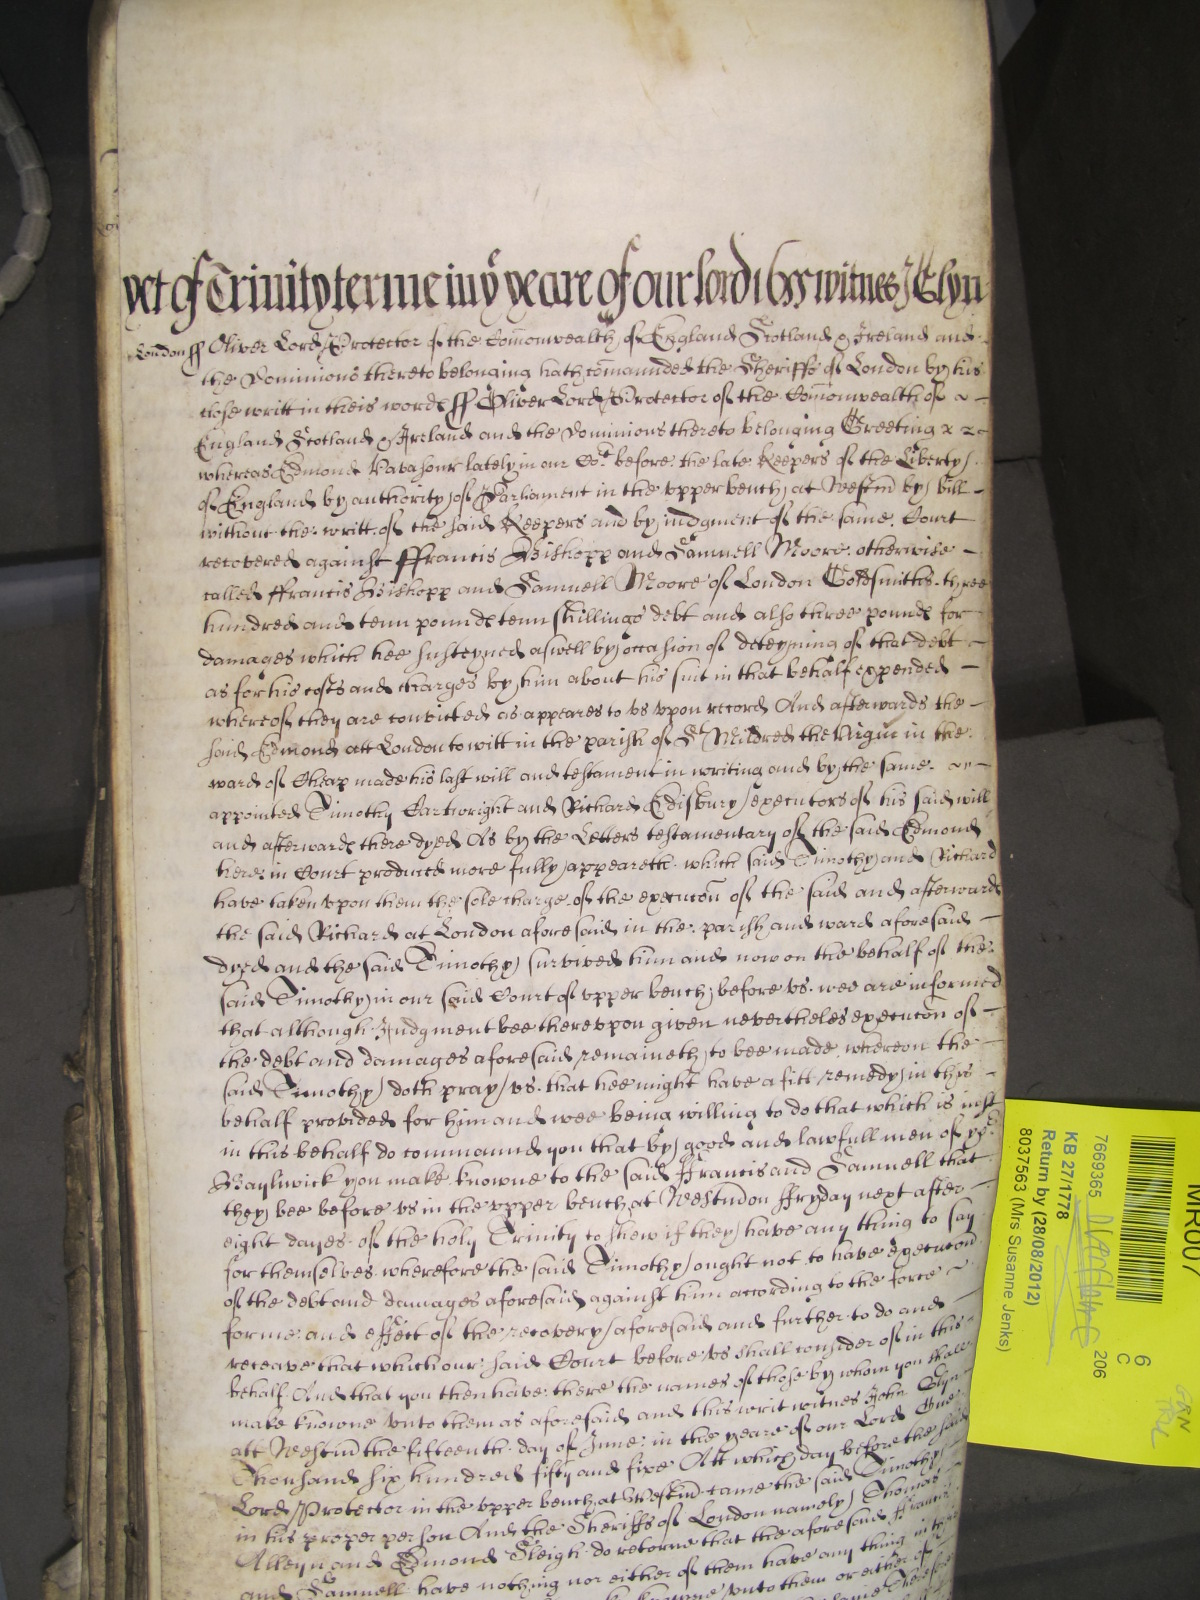 yet of Trinity terme in ye yeare of our lord 1655 witnes J Glyn
London ss Oliver Lord Protector of the Comonwealth of England Scotland & Ireland and
the Dominions thereto belonging hath comaunded the Sheriffs of London by his
close writt in theis words ss Oliver Lord Protector of the Comonwealth of
England Scotland & Ireland and the Dominions thereto belonging Greeting
whereas Edmond Vavasour lately in our Cot before the late Keepers of the Liberty
of England by authority of Parliament in the upper bench at Westm by bill
without the writt of the said Keepers and by iudgment of the same Court
recovered against ffrancis Bishopp and Samuell Moore otherwise
called ffrancis Bishopp and Samuell Moore of London Goldsmiths three
hundred and tenn pounds tenn shillings debt and also three pounds for
damages which hee susteyned aswell by occasion of deteyning of that debt
as for his costs and charges by him about his suit in that behalf expended
whereof they are convicted as appeares to us upon record And afterwards the
said Edmond att London to witt in the parish of St Mildred the Virgin in the
ward of Cheap made his last will and testament in writing and by the same
appointed Timothy Cartwright and Richard Edisbury executors of his said will
and afterwards there dyed As by the Letters testamentary of the said Edmond
here in Court produced more fully appeareth which said Timothy and Richard
have taken upon them the sole charge of the execucon of the said and afterwards
the said Richard at London aforesaid in the parish and ward aforesaid
dyed and the said Timothy survived him and now on the behalf of the
said Timothy in our said Court of upper bench before us wee are informed
that although Judgment bee thereupon given nevertheles execucon of
the debt and damages aforesaid remaineth to bee made whereon the
said Timothy doth pray us that hee might have a fitt remedy in this
behalf provided for him and wee being willing to do that which is iust
in this behalf do commaund you that by good and lawfull men of yor
Baylywick you make knowne to the said ffrancis and Samuell that
they bee before us in the upper bench at Westm on ffryday next after
eight dayes of the holy Trinity to shew if they have any thing to say
for themselves wherefore the said Timothy ought not to have execucon
of the debt and damages aforesaid against him according to the force
forme and effect of the recovery aforesaid and further to do and
receave that which our said Court before us shall consider of in this
behalf And that you then have there the names of those by whom you shall
make knowne unto them as aforesaid and this writ witnes John Glyn
att Westm the fifteenth day of June in the yeare of our Lord One
Thousand six hundred fifty and five Att which day before the said
Lord Protector in the upper bench at Westm came the said Timothy
in his proper person And the Sheriffs of London namely Thomas
Alleyn and Edmond Sleigh do retorne that the aforesaid ffrancis
and Samuell have nothing nor either of them have any thing in
unto them or either of
MR007
6
C
7669365
206
KB 27/1778
Return by (28/08/2012)
8037563 (Mrs Susanne Jenks)